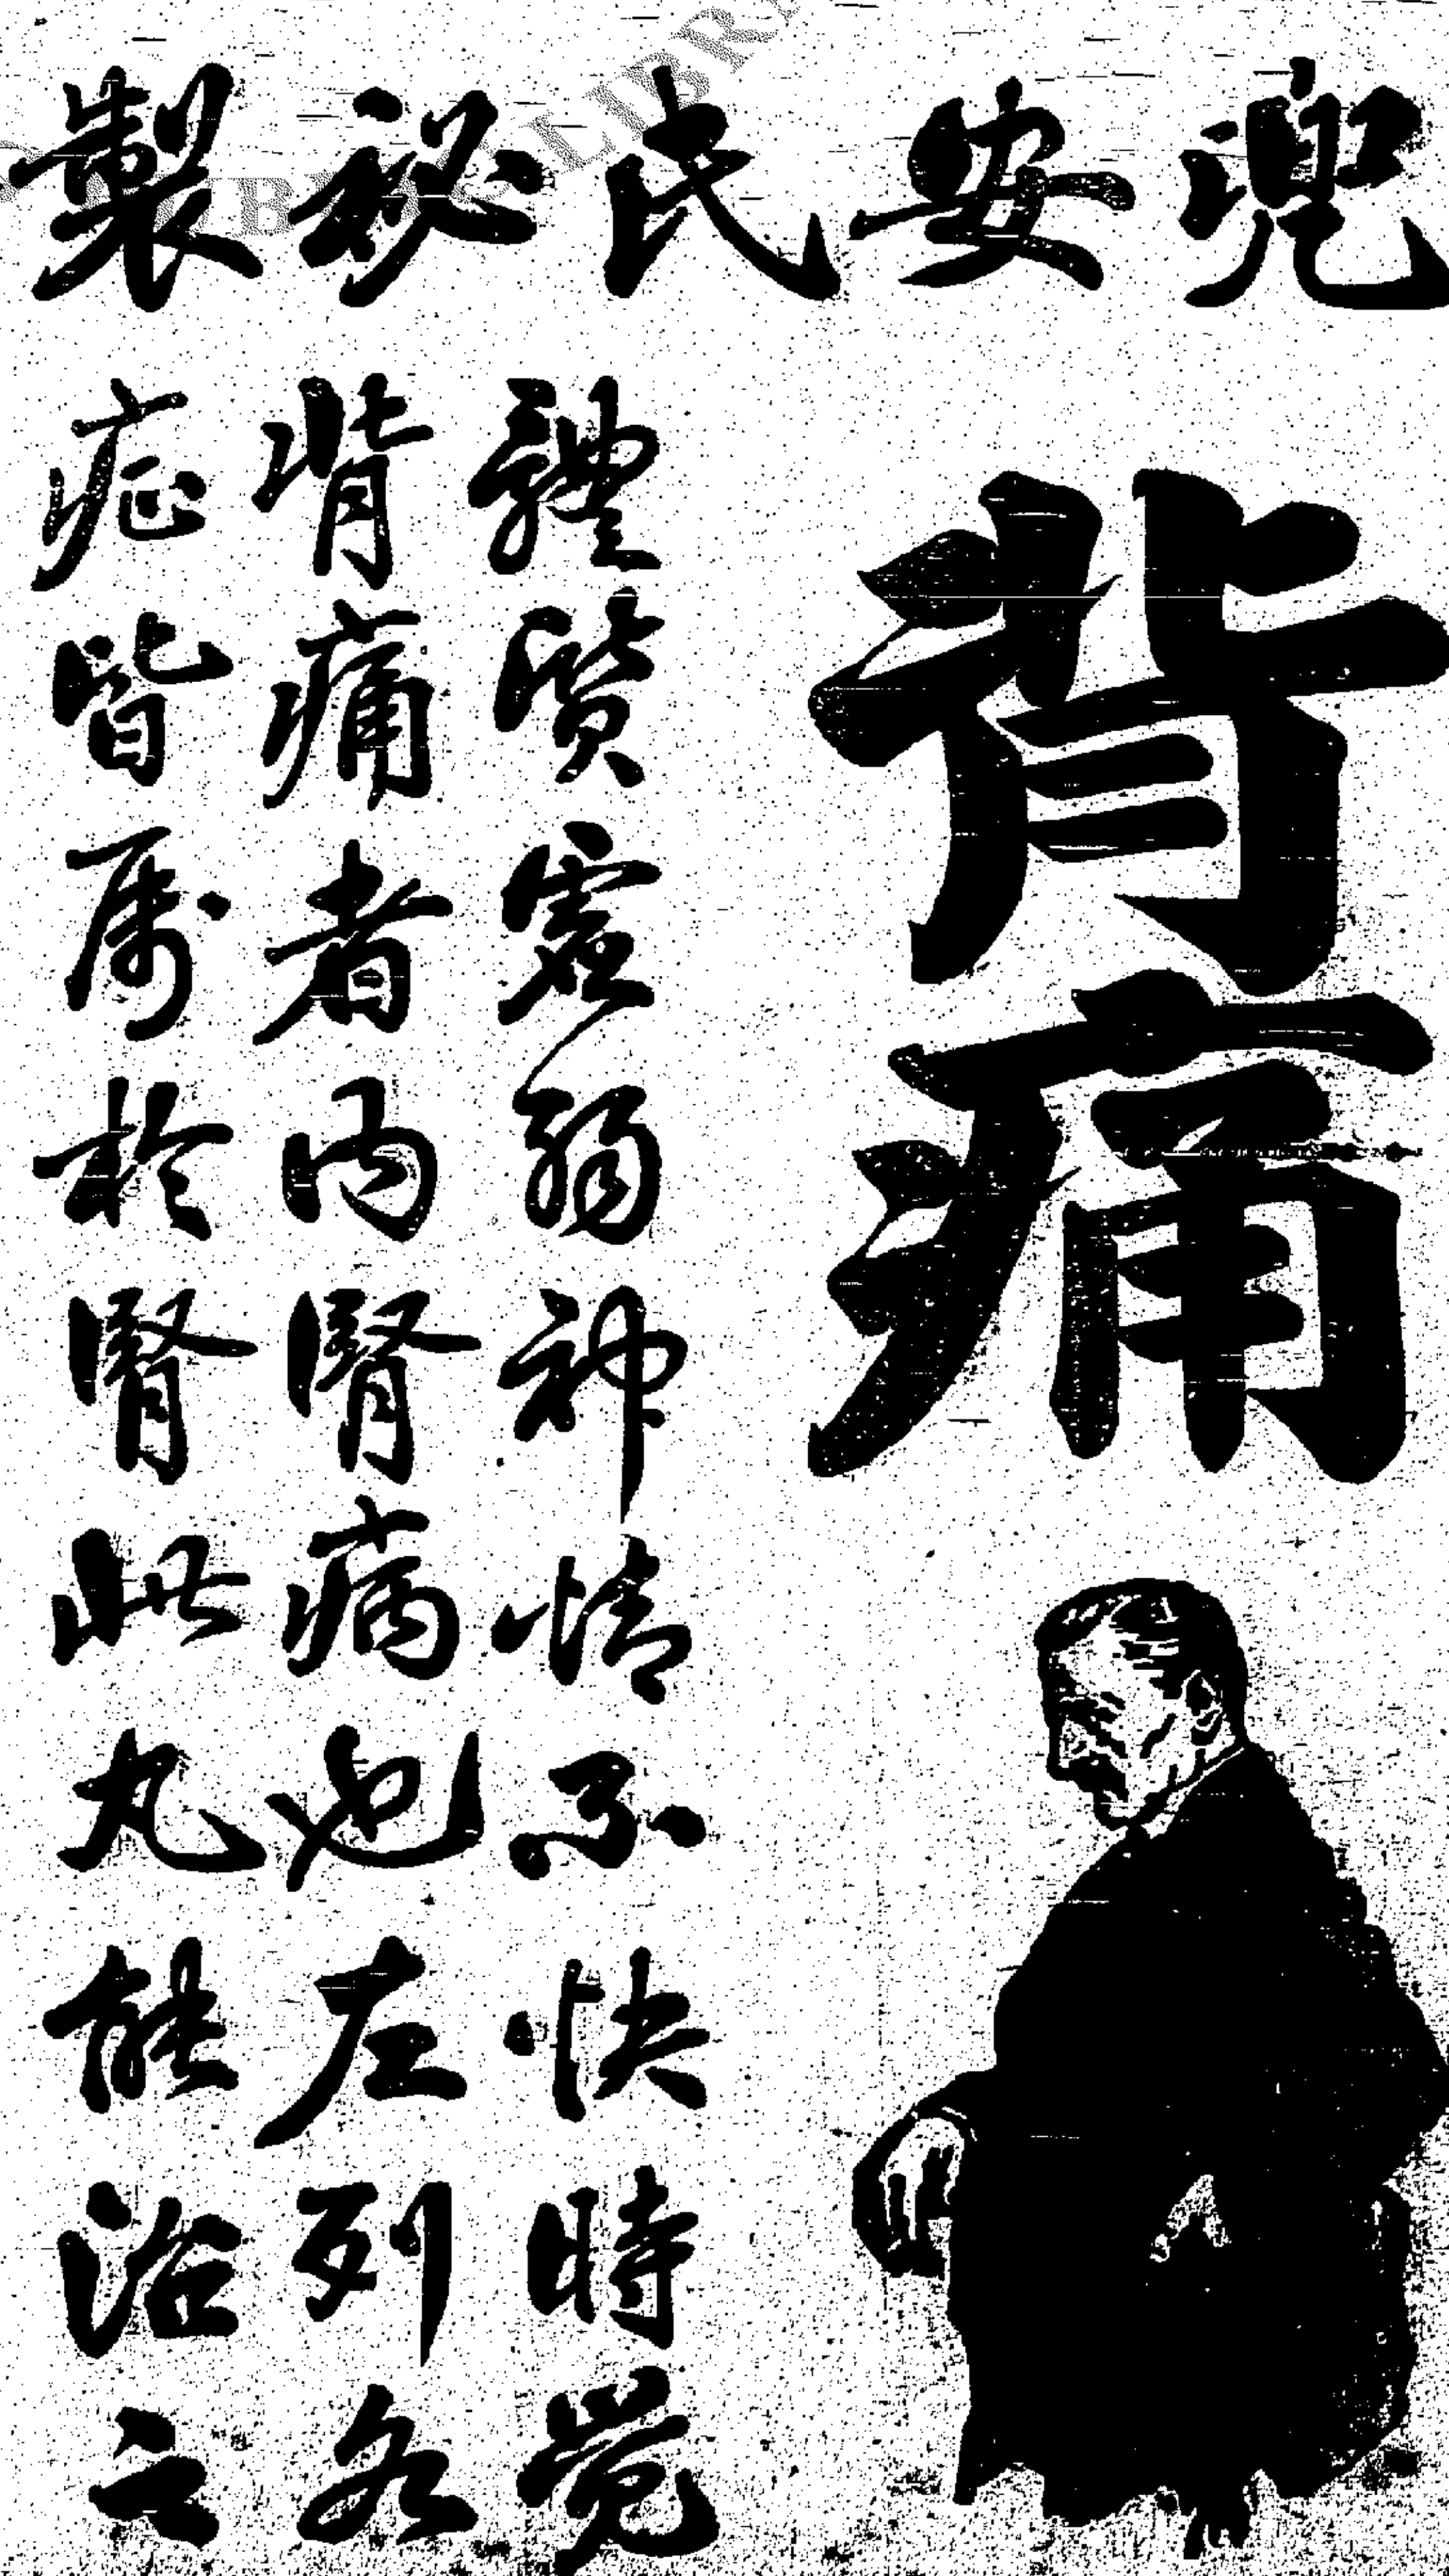 兜安氏秘製
背痛
體質虛弱神情不快時覺
背痛者內腎病也左列各
症皆屬於腎此丸能治之